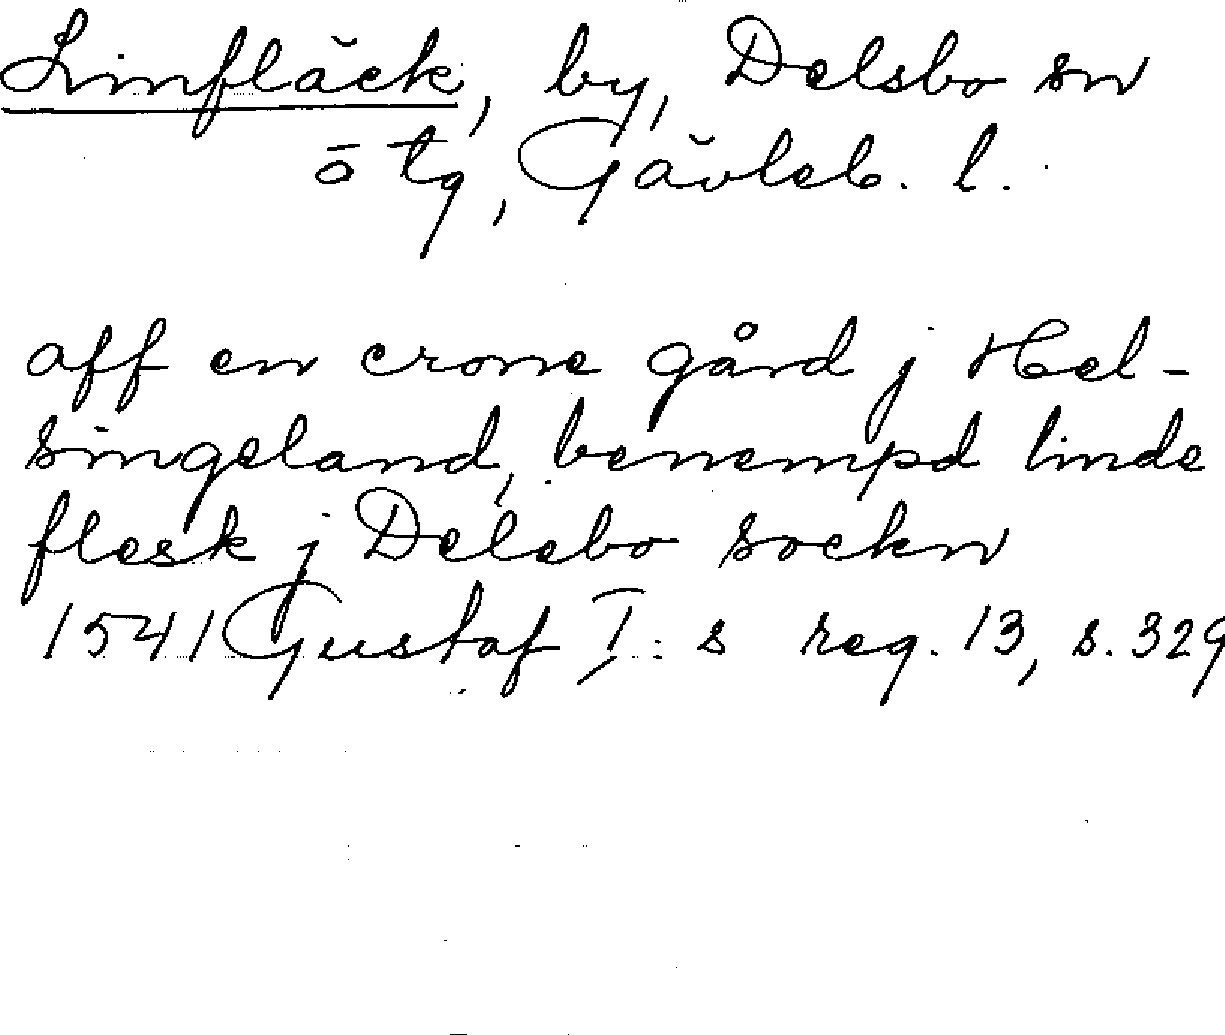 Linfläck, by, Delsbo sn
o tg, Gävleb. l.
aff en crone gård j Hel-
singeland, benempd linde
flesk j Delsbo sockn
1541 Gustaf I:s reg. 13, s. 329